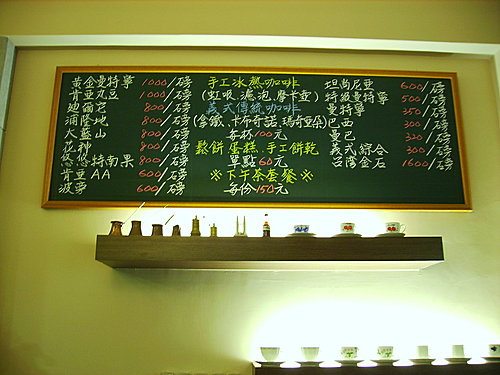 黃金曼特寧 1000/磅
肯亞丸豆 1000/磅
迪爾它 800/磅
浦隆地 800/磅
大藍山 800/磅
花神 800/磅
悠悠特南果 800/磅
肯亞AA 600/磅
波蒙 600/磅
手工冰熱咖啡
(虹吸.濾泡.摩卡壺)
義式傳統咖啡
(拿鐵.卡布奇諾.瑪奇亞朵)
每杯100元
鬆餅.蛋糕.手工餅乾
單點60元
※下午茶套餐※
每份150元
坦尚尼亞 600/磅
特級曼特寧 500/磅
曼特寧 350/磅
巴西 300/磅
曼巴 320/磅
義式綜合 300/磅
台灣金石 1600/磅